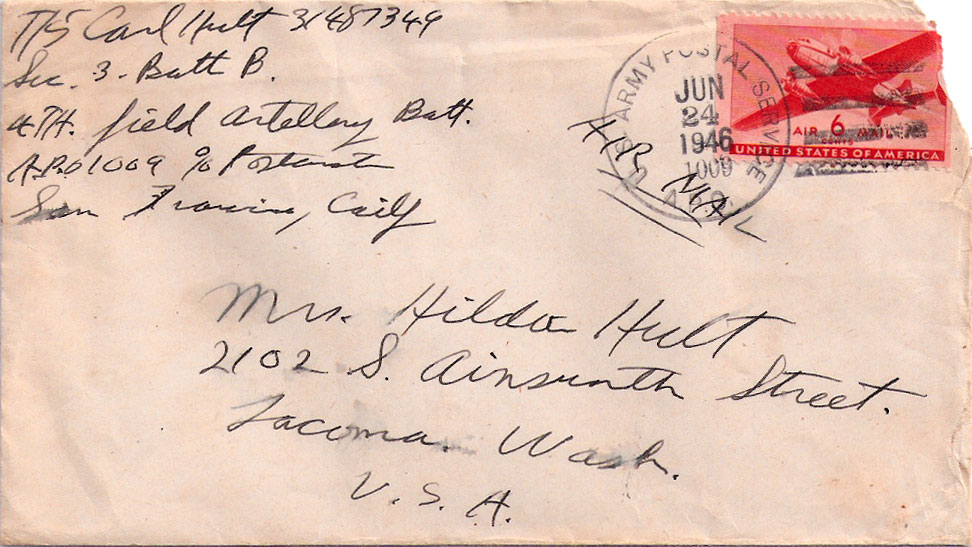 T/5 Carl Hult 31487349
Sec. 3. Batt B.
4TH. field Artellery Batt.
A.P.O 1009 % Postmast
San Francisco, Calif
U.S. ARMY POSTAL SERVICE
JUN
24
1946
1009
A.P.O.
AIR 6 MAIL
CENTS
UNITED STATES OF AMERICA
AIR MAIL
Mrs. Hilda Hult
2102 S. Ainsworth Street.
Tacoma. Wash.
U.S.A.